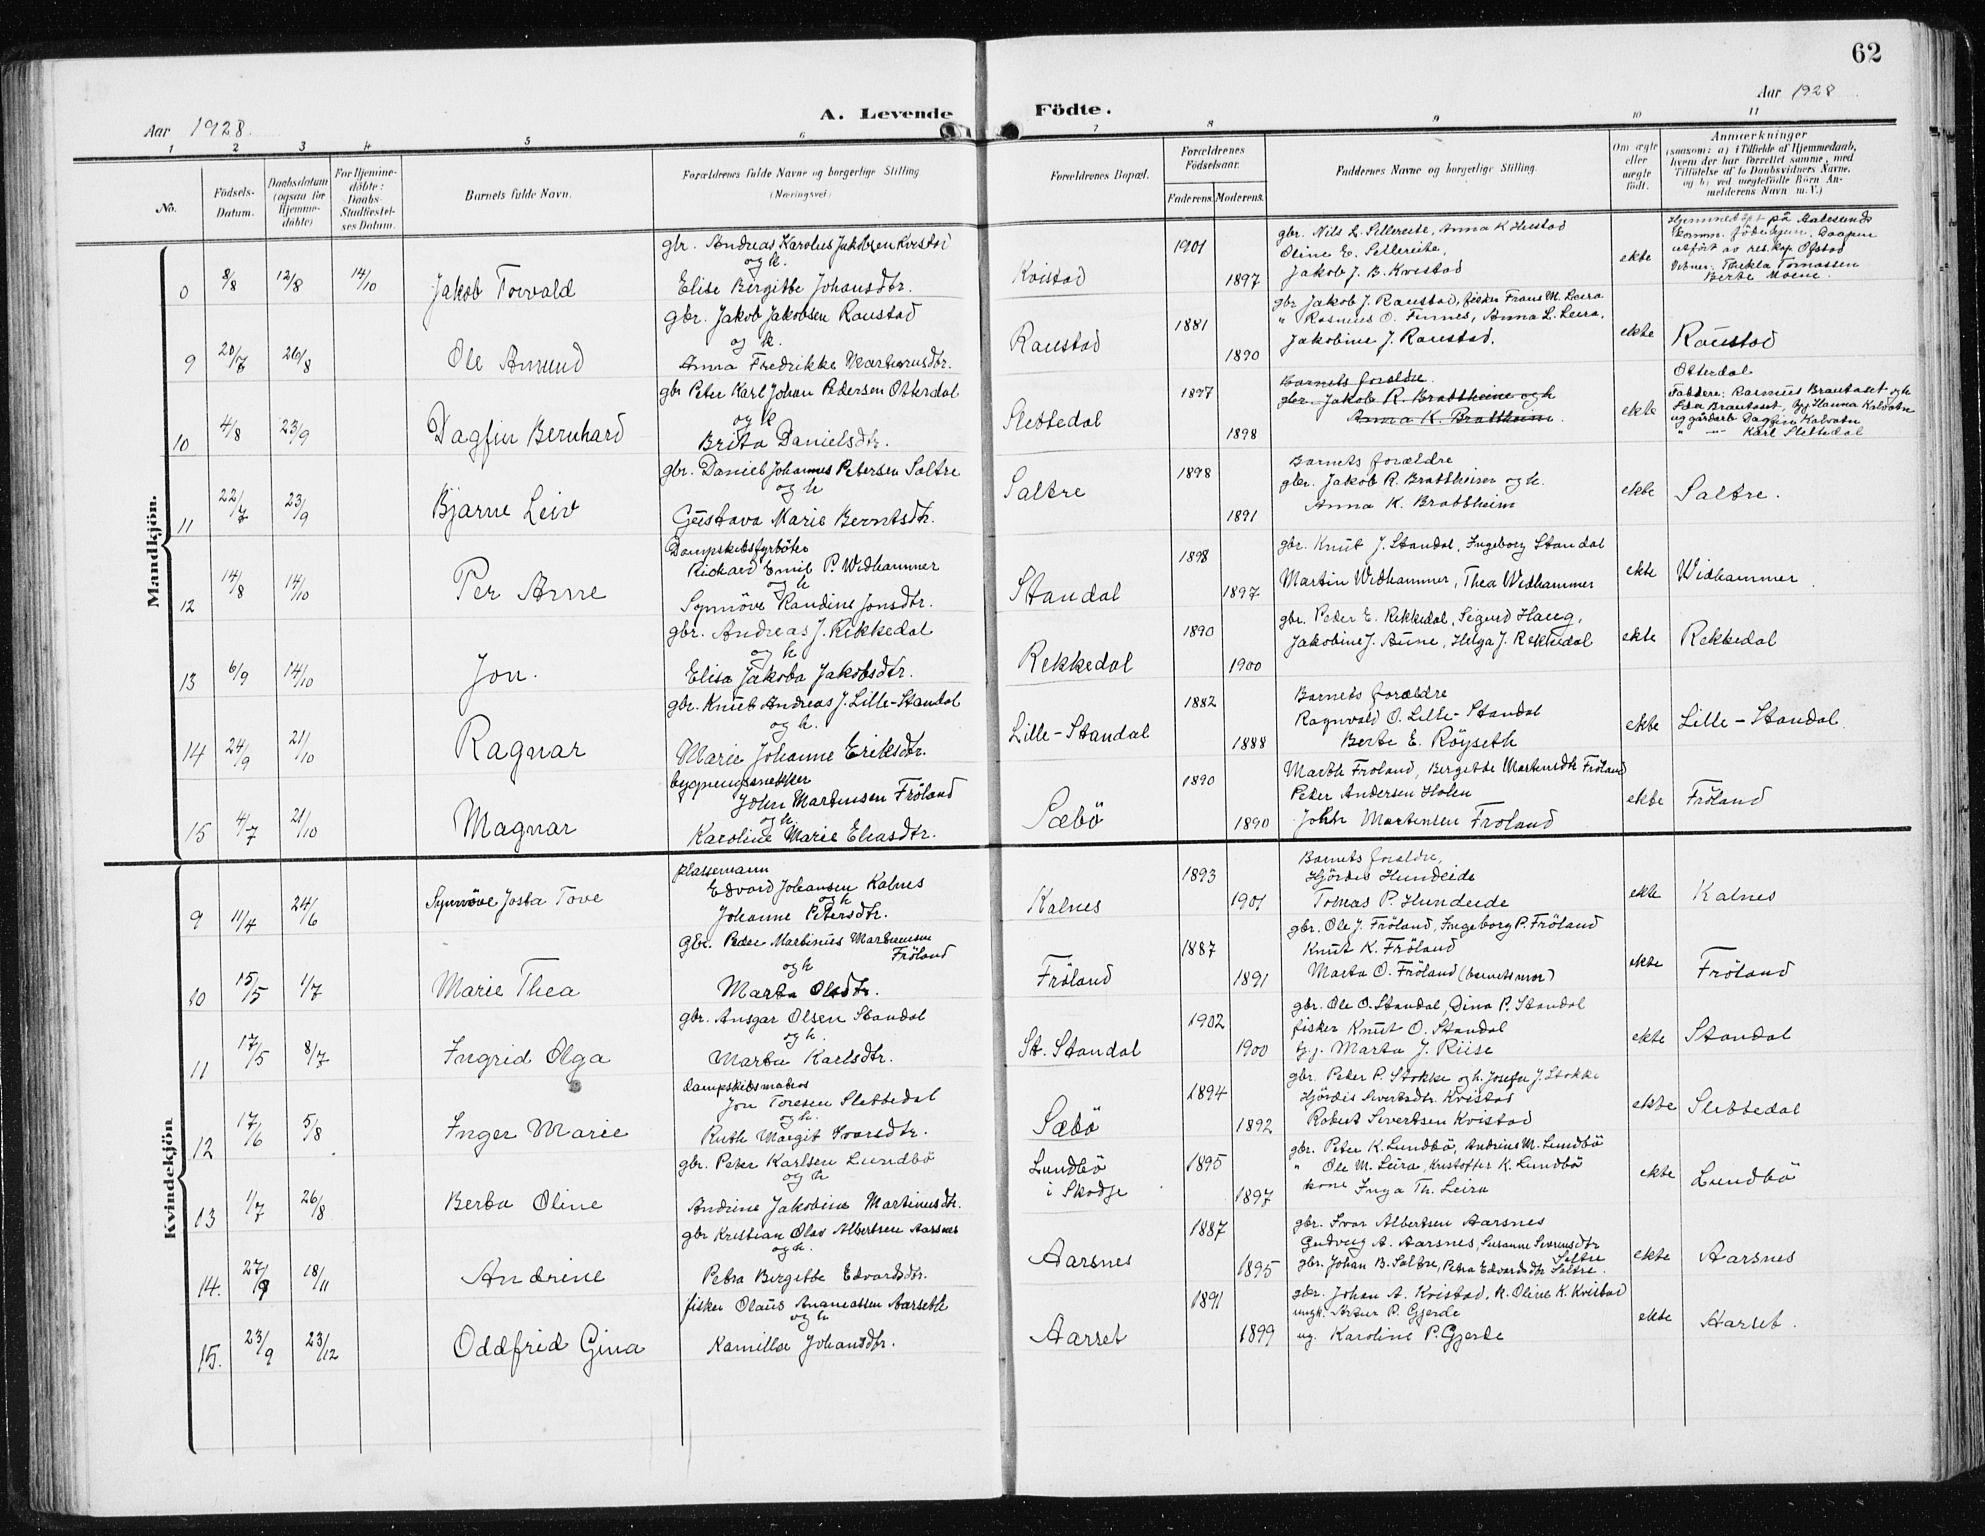 62
Aar 1928.
A. Levende Födte.
Aar 1928
1 2 3 4 5 6 7 8 9 10 11
No.
Födsels-Datum.
Daabsdatum (ogsaa for Hjemmedöbte)
For Hjemmedöbte: Daabs-Stadfæstelses Datum.
Barnets fulde Navn.
Forældrenes fulde Navne og borgerlige Stilling (Næringsvei)
Forældrenes Bopæl.
Forældrenes Födselsaar.
Faderens. Moderens.
Faddernes Navne og borgerlige Stilling.
Om ægte eller uægte födt.
Anmærkninger
(saasom: a) i Tilfælde af Hjemmedaab, hvem der har forrettet samme, med Tilföielse af to Daabsvidners Navne, og b) ved uægtefödte Börn Anmelderens Navn m. V.)
Mandkjön.
8 8/8 12/8 14/10 Jakob Torvald
gbr. Andreas Karolus Jakobsen Kvistad
og h.
Elise Bergitte Johansdtr.
Kvistad 1901 1897
gbr. Nils L. Sellereite, Anna K Hustad
Oline E. Sellereite,
Jakob J. B. Kvistad
ekte
Hjemmedöpt på Aalesunds
komm. födehjem. Daapen
utfört av res. kap. Ofstad
Vitner: Thekla Tomassen
Berte Moene.
9 20/7 26/8 Ole Amund
gbr. Jakob Jakobsen Raustad
og h.
Anna Fredrikke Martinusdtr.
Raustad 1881 1890
gbr Jakob J. Raustad, fisker Frans M. Leira
" Rasmus O. Finnes, Anna L. Leira,
Jakobine J. Raustad.
ekte Raustad
10 4/8 23/9 Dagfin Bernhard
gbr Peter Karl Johan Pedersen Otterdal
og h
Brita Danielsdtr.
Slettedal 1897 1898
Barnets foreldre
gbr. Jakob R. Brattheim og h
Anna K. Brattheim.
ekte
Otterdal
Faddere: Rasmus Brautaset og h.
Lea Brautaset, pj. Hanna Kalvatn
ug gårdarb Dagfin Kalvatn
" — Karl Slettedal
11 22/7 23/9 Bjarne Leiv
gbr. Daniel Johannes Petersen Saltre
og h
Gustava Marie Berntsdtr.
Saltre 1898 1891
Barnets forældre
gbr. Jakob R. Brattheim og h.
Anna K. Brattheim
ekte Saltre.
12 14/8 14/10 Per Arne
Dampskibsfyrböter
Rickard Emil P. Widhammer
og h
Synnöve Randine Jonsdtr.
Standal 1898 1897
gbr. Knut J. Standal, Ingeborg Standal
Martin Widhammer, Thea Widhammer
ekte Widhammer
13 6/9 14/10 Jon.
gbr. Andreas J. Rekkedal
og h
Elisa Jakoba Jakobsdtr.
Rekkedal 1890 1900
gbr. Peder E. Rekkedal, Sigurd Haug,
Jakobine J. Aune, Helga J. Rekkedal
ekte Rekkedal
14 24/9 21/10 Ragnar
gbr. Knut Andreas J. Lille-Standal
og h.
Marie Johanne Eriksdtr.
Lille-Standal 1882 1888
Barnets forældre
Ragnvald O. Lille-Standal
Berte E. Röyseth
ekte Lille-Standal
15 4/7 21/10 Magnar
bygningssnekker
John Martinsen Fröland
og h
Karoline Marie Eliasdtr.
Sæbö 1890 1890
Marth Froland, Bergitte Martinsdtr Fröland
Peter Andersen Holen
John Martinsen Froland
ekte Fröland
Kvindekjön
9 11/4 24/6 Synnöve Josta Tove
plassemann
Edvard Johansen Kalnes
og h
Johanne Petersdtr.
Kalnes 1893 1901
Barnets foreldre,
Hjördis Hundeide
Tomas P. Hundeide
ekte Kalnes
10 15/5 1/7 Marie Thea
Gbr. Peder Martinus Martinussen
Fröland
og h
Marta Olsdtr.
Fröland 1887 1891
gbr. Ole J. Fröland, Ingeborg P. Fröland
Knut K. Fröland
Marta O. Fröland (barnets mor)
ekte Fröland
11 17/5 8/7 Ingrid Olga
gbr. Ansgar Olsen Standal
og h.
Marta Karlsdtr.
St. Standal 1902 1900
gbr. Ole O. Standal, Dina P. Standal
fisker Knut O. Standal
pj. Marta J. Riise
ekte Standal
12 17/6 5/8 Inger Marie
Dampskibsmatros
Jon Toresen Slettedal
og h.
Ruth Margit Ivarsdtr.
Sæbö 1894 1892
gbr. Peder P. Stokke og h. Josefa J. Stokke
Hjördis Sivertsdtr. Kvistad
Robert Sivertsen Kvistad
ekte Slettedal
13 1/7 26/8 Berta Oline
gbr. Peter Karlsen Lundbö
og h
Andrine Jakobine Martinusdtr.
Lundbö
i Skodje 1895 1897
gbr. Peter K. Lundbö, Andrius M. Lundbö
" Ole M. Leira, Kristoffer K. Lundbö
kone Inga Th. Leira
ekte Lundbö
14. 27/9 18/11 Andrine
gbr Kristian Olav Albertsen Aarsnes
og h.
Petra Bergitte Edvardsdtr.
Aarsnes 1887 1895
gbr. Ivar Albertsen Aarsnes
Gudveig A. Aarsnes, Susanne Severinsdtr
Saltre
gbr. Johan B. Saltre, Petra Edvardsdtr Saltre.
ekte Aarsnes
15. 23/9 23/12 Oddfrid Gina
fisker Olaus Ananiassen Aarseth
og h
Kamilla Johansdtr.
Aarset 1891 1899
gbr. Johan A. Kvistad, k. Oline K. Kvistad
ungk. Artur P. Gjerde
ug. Karoline P. Gjerde
ekte Aarset.